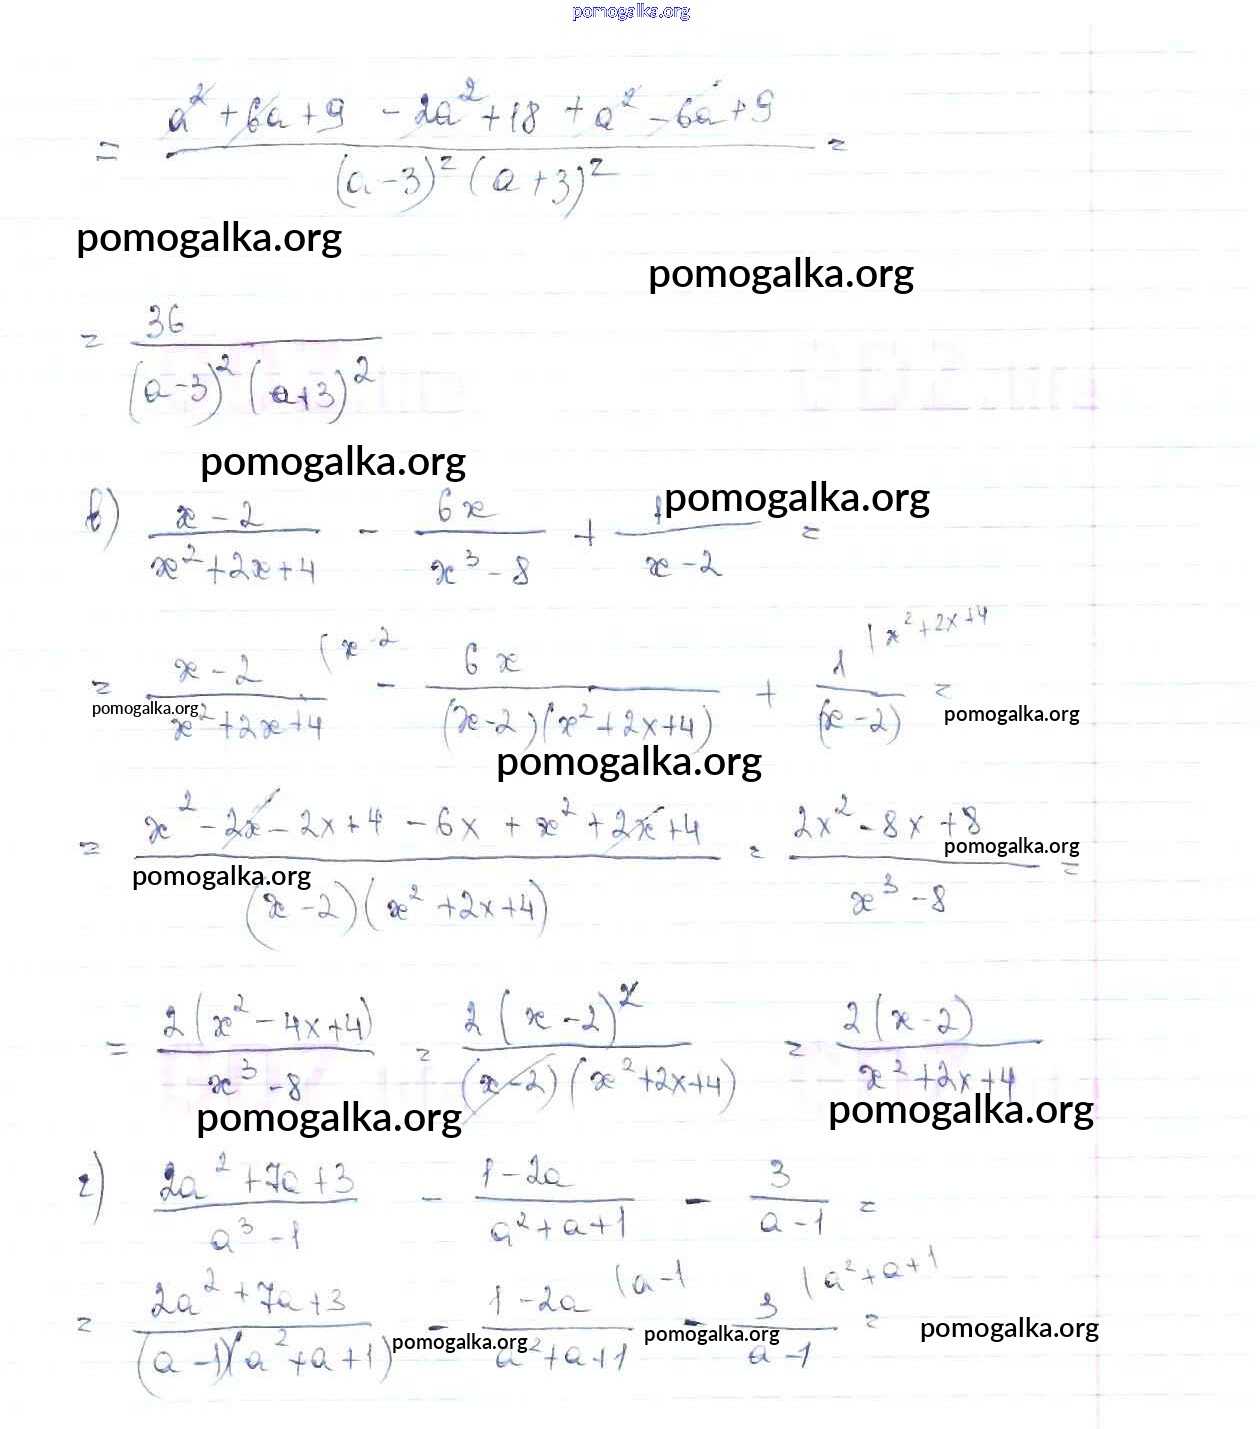 pomogalka.org
= (a² + 6a + 9 - 2a² + 18 + a² - 6a + 9) / ((a - 3)² (a + 3)²) =
pomogalka.org
pomogalka.org
= 36 / ((a - 3)² (a + 3)²)
pomogalka.org
pomogalka.org
в) (x - 2) / (x² + 2x + 4) - 6x / (x³ - 8) + 1 / (x - 2) =
= (x - 2) / (x² + 2x + 4) (x - 2 - 6x / ((x - 2)(x² + 2x + 4)) + 1 / (x - 2) (x² + 2x + 4 =
pomogalka.org
pomogalka.org
pomogalka.org
= (x² - 2x - 2x + 4 - 6x + x² + 2x + 4) / ((x - 2)(x² + 2x + 4)) = (2x² - 8x + 8) / (x³ - 8) =
pomogalka.org
pomogalka.org
= 2(x² - 4x + 4) / (x³ - 8) = 2(x - 2)² / ((x - 2)(x² + 2x + 4)) = 2(x - 2) / (x² + 2x + 4)
pomogalka.org
pomogalka.org
г) (2a² + 7a + 3) / (a³ - 1) - (1 - 2a) / (a² + a + 1) - 3 / (a - 1) =
= (2a² + 7a + 3) / ((a - 1)(a² + a + 1)) - (1 - 2a) / (a² + a + 1) (a - 1 - 3 / (a - 1) (a² + a + 1 =
pomogalka.org
pomogalka.org
pomogalka.org